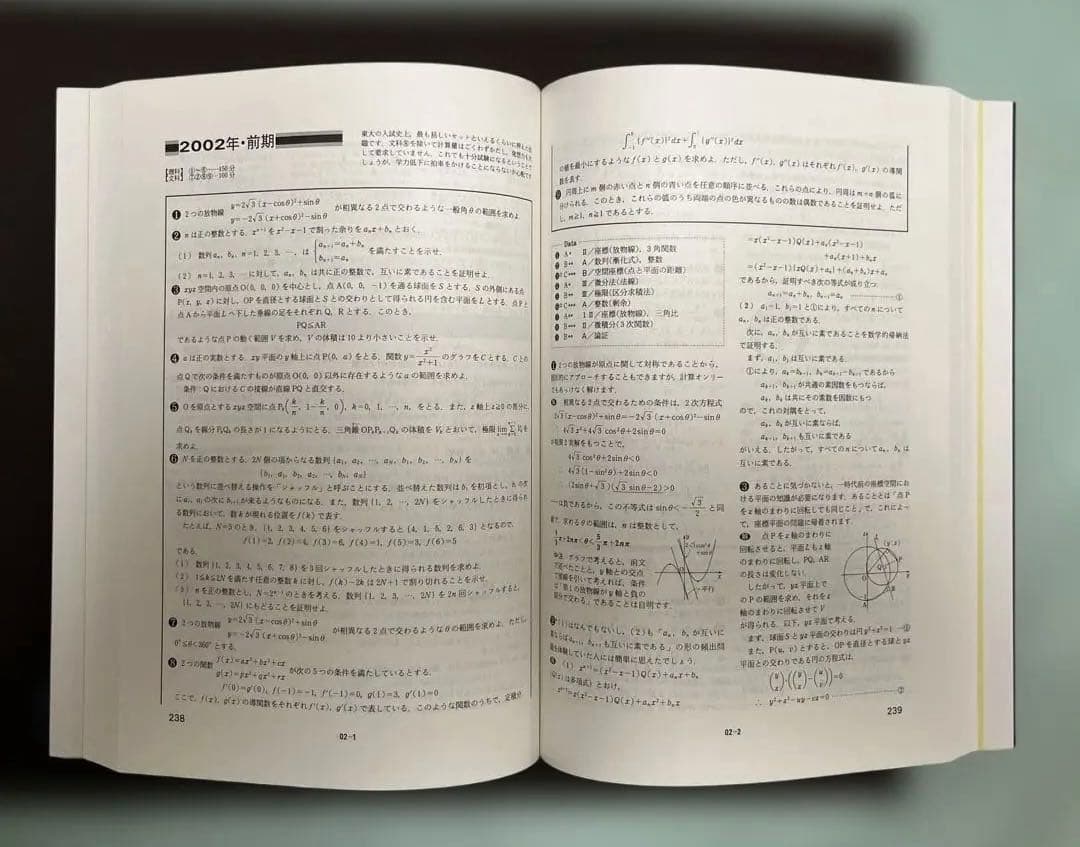 2002年・前期
東大の入試史上，最も易しいセットといえるくらいに
題です．文科⑧を除いて計算量はごくわずかだし，発想力も
して要求していません．これでも十分試験になるということで
しょうが，学力低下に拍車をかけることにならないか心配です
理科 ①〜⑥……150分
文科 ⑦②⑧⑨…100分
❶ 2つの放物線 y=2√3(x−cosθ)²+sinθ
y=−2√3(x+cosθ)²−sinθ が相異なる2点で交わるような一般角θの範囲を求めよ．
❷ nは正の整数とする．xⁿ⁺¹をx²−x−1で割った余りをaₙx+bₙとおく．
(1) 数列aₙ，bₙ，n=1，2，3，…，は {aₙ₊₁=aₙ+bₙ
bₙ₊₁=aₙ を満たすことを示せ．
(2) n=1，2，3，…に対して，aₙ，bₙは共に正の整数で，互いに素であることを証明せよ．
❸ xyz空間内の原点O(0，0，0)を中心とし，点A(0，0，−1)を通る球面をSとする．Sの外側にある点
P(x，y，z)に対し，OPを直径とする球面とSとの交わりとして得られる円を含む平面をLとする．点Pと
点Aから平面Lへ下した垂線の足をそれぞれQ，Rとする．このとき，
PQ≦AR
であるような点Pの動く範囲Vを求め，Vの体積は10より小さいことを示せ．
❹ aは正の実数とする．xy平面のy軸上に点P(0，a)をとる．関数y=x²/(x²+1)のグラフをCとする．C上の
点Qで次の条件を満たすものが原点O(0，0)以外に存在するようなaの範囲を求めよ．
条件：QにおけるCの接線が直線PQと直交する．
❺ Oを原点とするxyz空間に点Pₖ(k/n，1−k/n，0)，k=0，1，…，n，をとる．また，z軸上z≧0の部分に，
点Qₖを線分PₖQₖの長さが1になるようにとる．三角錐OPₖPₖ₊₁Qₖの体積をVₖとおいて，極限lim ΣVₖを
求めよ．
❻ Nを正の整数とする．2N個の項からなる数列{a₁，a₂，…，a_N，b₁，b₂，…，b_N}を
{b₁，a₁，b₂，a₂，…，b_N，a_N}
という数列に並べ替える操作を「シャッフル」と呼ぶことにする．並べ替えた数列はb₁を初項とし，bᵢの次
にaᵢ，aᵢの次にbᵢ₊₁が来るようなものになる．また，数列{1，2，…，2N}をシャッフルしたときに得られ
る数列において，数kが現れる位置をf(k)で表す．
たとえば，N=3のとき，{1，2，3，4，5，6}をシャッフルすると{4，1，5，2，6，3}となるので，
f(1)=2，f(2)=4，f(3)=6，f(4)=1，f(5)=3，f(6)=5
である．
(1) 数列{1，2，3，4，5，6，7，8}を3回シャッフルしたときに得られる数列を求めよ．
(2) 1≦k≦2Nを満たす任意の整数kに対し，f(k)−2kは2N+1で割り切れることを示せ．
(3) nを正の整数とし，N=2ⁿ⁻¹のときを考える．数列{1，2，3，…，2N}を2n回シャッフルすると，
{1，2，3，…，2N}にもどることを証明せよ．
❼ 2つの放物線 y=2√3(x−cosθ)²+sinθ
y=−2√3(x+cosθ)²−sinθ が相異なる2点で交わるようなθの範囲を求めよ．ただし，
0°≦θ<360°とする．
❽ 2つの関数 f(x)=ax³+bx²+cx
g(x)=px³+qx²+rx が次の5つの条件を満たしているとする．
f′(0)=g′(0)，f(−1)=−1，f′(−1)=0，g(1)=3，g′(1)=0
ここで，f(x)，g(x)の導関数をそれぞれf′(x)，g′(x)で表している．このような関数のうちで，定積分
238
02-1
∫{f″(x)}²dx+∫{g″(x)}²dx
の値を最小にするようなf(x)とg(x)を求めよ．ただし，f″(x)，g″(x)はそれぞれf′(x)，g′(x)の導関
数を表す．
円周上にm個の赤い点とn個の青い点を任意の順序に並べる．これらの点により，円周はm+n個の弧に
分けられる．このとき，これらの弧のうち両端の点の色が異なるものの数は偶数であることを証明せよ．ただ
し，m≧1，n≧1であるとする．
Data
❶ A* Ⅱ／座標(放物線)，3角関数
❷ B** A／数列(漸化式)，整数
❸ C*** B／空間座標(点と平面の距離)
❹ A* Ⅲ／微分法(法線)
❺ B** Ⅲ／極限(区分求積法)
A／整数(剰余)
A** Ⅰ Ⅱ／座標(放物線)，三角比
B*** Ⅱ／微積分(3次関数)
B** A／論証
❶ 2つの放物線が原点に関して対称であることから，
図形的にアプローチすることもできますが，計算オンリー
でもあっけなく解けます．
相異なる2点で交わるための条件は，2次方程式
2√3(x−cosθ)²+sinθ=−2√3(x+cosθ)²−sinθ
∴ 4√3x²+4√3cos²θ+2sinθ=0
が相異なる2実解をもつことで，
4√3cos²θ+2sinθ<0
∴ 4√3(1−sin²θ)+2sinθ<0
∴ (2sinθ+√3)(√3sinθ−2)>0
は負であるから，この不等式はsinθ<−√3/2と同
値．求めるθの範囲は，nは整数として，
4/3π+2nπ<θ<5/3π+2nπ
グラフで考えると，前文
で述べたことと，y軸との交点
に接線を引いて考えれば，条件
は「第1の放物線がy軸と負の
部分で交わる」であることは自明です．
y
2√3cos²θ
+sinθ
O
x
平行
❷ (1)はなんでもないし，(2)も「aₙ，bₙが互いに
素ならばaₙ₊₁，bₙ₊₁も互いに素である」の形の頻出問
題を経験していた人には簡単に思えたでしょう．
(1) xⁿ⁺¹=(x²−x−1)Q(x)+aₙx+bₙ
(Q(x)は多項式)とおけ，
xⁿ⁺²=x(x²−x−1)Q(x)+aₙx²+bₙx
=x(x²−x−1)Q(x)+aₙ(x²−x−1)
+aₙ(x+1)+bₙx
=(x²−x−1){xQ(x)+aₙ}+(aₙ+bₙ)x+aₙ
であるから，証明すべき次の等式が成り立つ．
aₙ₊₁=aₙ+bₙ，bₙ₊₁=aₙ ……①
(2) a₁=1，b₁=1と①により，すべてのnについて
aₙ，bₙは正の整数である．
次に，aₙ，bₙが互いに素であることを数学的帰納法
で証明する．
まず，a₁，b₁は互いに素である．
①により，aₖ=bₖ₊₁，bₖ=aₖ₊₁−bₖ₊₁であるから
aₖ₊₁，bₖ₊₁が共通の素因数をもつならば，
aₖ，bₖは共にその素数を因数にもつ
ので，この対偶をとって，
aₖ，bₖが互いに素ならば，
aₖ₊₁，bₖ₊₁も互いに素である
がいえる．したがって，すべてのnについてaₙ，bₙは
互いに素である．
❸ あることに気づかないと，一時代前の座標空間にお
ける平面の知識が必要になります．あることとは「点P
をz軸のまわりに回転しても同じこと」で，これによっ
て，座標平面の問題に帰着されます．
解 点Pをz軸のまわりに
回転させると，平面Lもz軸
のまわりに回転し，PQ，AR
の長さは変化しない．
したがって，yz平面上で
のPの範囲を求め，それをz
軸のまわりに回転させてV
が得られる．以下，yz平面で考える．
まず，球面Sとyz平面の交わりは円y²+z²=1 …①
また，P(u，v)とすると，OPを直径とする球とyz
平面との交わりである円の方程式は，
(y z)・((y z)−(u v))=0
∴ y²+z²−uy−vz=0 ……②
239
02-2